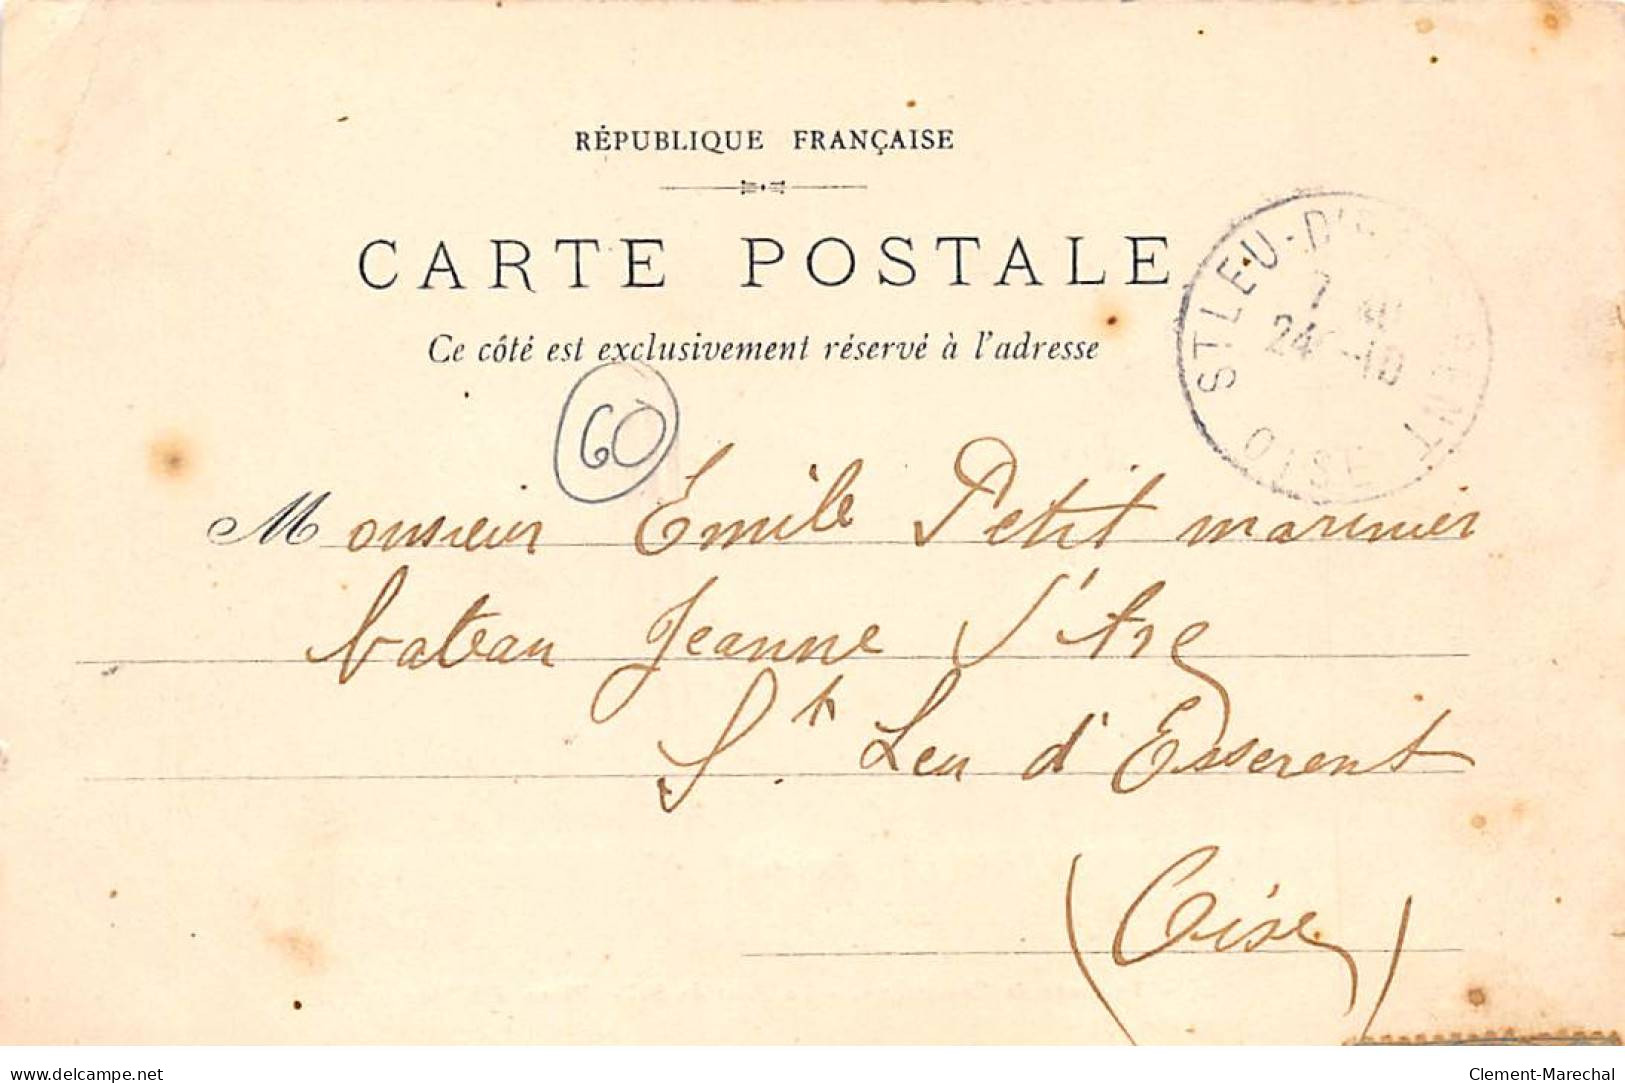 RÉPUBLIQUE FRANÇAISE
CARTE POSTALE
Ce côté est exclusivement réservé à l'adresse
ST LEU-D'E ENT
7
24 -10
OISE
60
Monsieur Emile Petit marinier
bateau Jeanne d'Arc
St. Leu d'Esserent
(Oise)
www.delcampe.net
Clement-Marechal